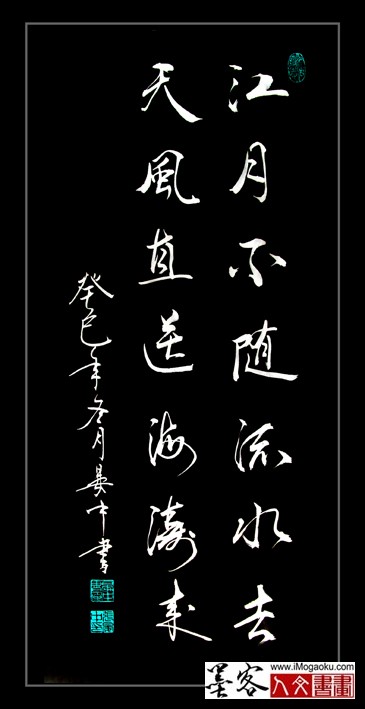 江月不随流水去
天風直送海濤来
癸巳年冬月晏中書
www.iMogaoku.com
墨客
人文書畫